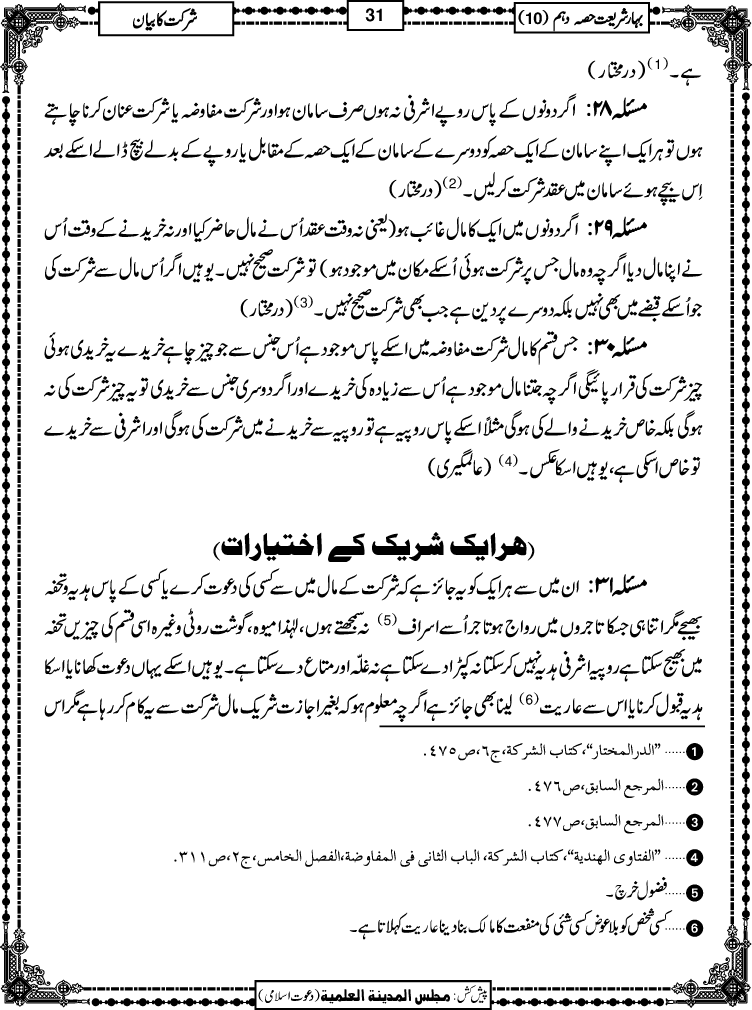 بہار شریعت حصہ دہم (10)
31
شرکت کا بیان
ہے۔(1) (درمختار)
مسئلہ ۲۸: اگر دونوں کے پاس روپے اشرفی نہ ہوں صرف سامان ہو اور شرکت مفاوضہ یا شرکت عنان کرنا چاہتے
ہوں تو ہر ایک اپنے سامان کے ایک حصہ کو دوسرے کے سامان کے ایک حصہ کے مقابل یا روپے کے بدلے بیچ ڈالے اسکے بعد
اِس بیچے ہوئے سامان میں عقد شرکت کرلیں۔(2) (درمختار)
مسئلہ ۲۹: اگر دونوں میں ایک کا مال غائب ہو (یعنی نہ وقت عقد اُس نے مال حاضر کیا اور نہ خریدنے کے وقت اُس
نے اپنا مال دیا اگرچہ وہ مال جس پر شرکت ہوئی اُسکے مکان میں موجود ہو) تو شرکت صحیح نہیں۔ یوہیں اگر اُس مال سے شرکت کی
جو اُسکے قبضے میں بھی نہیں بلکہ دوسرے پر دین ہے جب بھی شرکت صحیح نہیں۔(3) (درمختار)
مسئلہ ۳۰: جس قسم کا مال شرکت مفاوضہ میں اسکے پاس موجود ہے اُس جنس سے جو چیز چاہے خریدے یہ خریدی ہوئی
چیز شرکت کی قرار پائیگی اگرچہ جتنا مال موجود ہے اُس سے زیادہ کی خریدے اور اگر دوسری جنس سے خریدی تو یہ چیز شرکت کی نہ
ہوگی بلکہ خاص خریدنے والے کی ہوگی مثلاً اسکے پاس روپیہ ہے تو روپیہ سے خریدنے میں شرکت کی ہوگی اور اشرفی سے خریدے
تو خاص اسکی ہے، یوہیں اسکا عکس۔(4) (عالمگیری)
(ھر ایک شریک کے اختیارات)
مسئلہ ۳۱: ان میں سے ہر ایک کو یہ جائز ہے کہ شرکت کے مال میں سے کسی کی دعوت کرے یا کسی کے پاس ہدیہ و تحفہ
بھیجے مگر اتنا ہی جسکا تاجروں میں رواج ہو تاجر اُسے اسراف(5) نہ سمجھتے ہوں، لہٰذا میوہ، گوشت روٹی وغیرہ اسی قسم کی چیزیں تحفہ
میں بھیج سکتا ہے روپیہ اشرفی ہدیہ نہیں کر سکتا نہ کپڑا دے سکتا ہے نہ غلّہ اور متاع دے سکتا ہے۔ یوہیں اسکے یہاں دعوت کھانا یا اسکا
ہدیہ قبول کرنا یا اس سے عاریت(6) لینا بھی جائز ہے اگرچہ معلوم ہو کہ بغیر اجازت شریک مال شرکت سے یہ کام کر رہا ہے مگر اس
1 ...... "الدرالمختار"،کتاب الشرکة، ج٦،ص٤٧٥.
2 ......المرجع السابق،ص٤٧٦.
3 ......المرجع السابق،ص٤٧٧.
4 ...... "الفتاوی الھندیة"،کتاب الشرکة، الباب الثانی فی المفاوضة،الفصل الخامس،ج٢،ص٣١١.
5 ......فضول خرچ۔
6 ......کسی شخص کو بلا عوض کسی شئی کی منفعت کا مالک بنا دینا عاریت کہلاتا ہے۔
پیش کش: مجلس المدینة العلمیة (دعوت اسلامی)